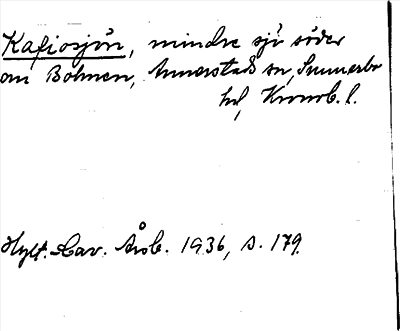 Kafiosjön, mindre sjö söder
om Bolmen, Annerstads sn, Sunnerbo
hd, Kronob. l.
Hylt.-Cav. Årsb. 1936, s. 179.